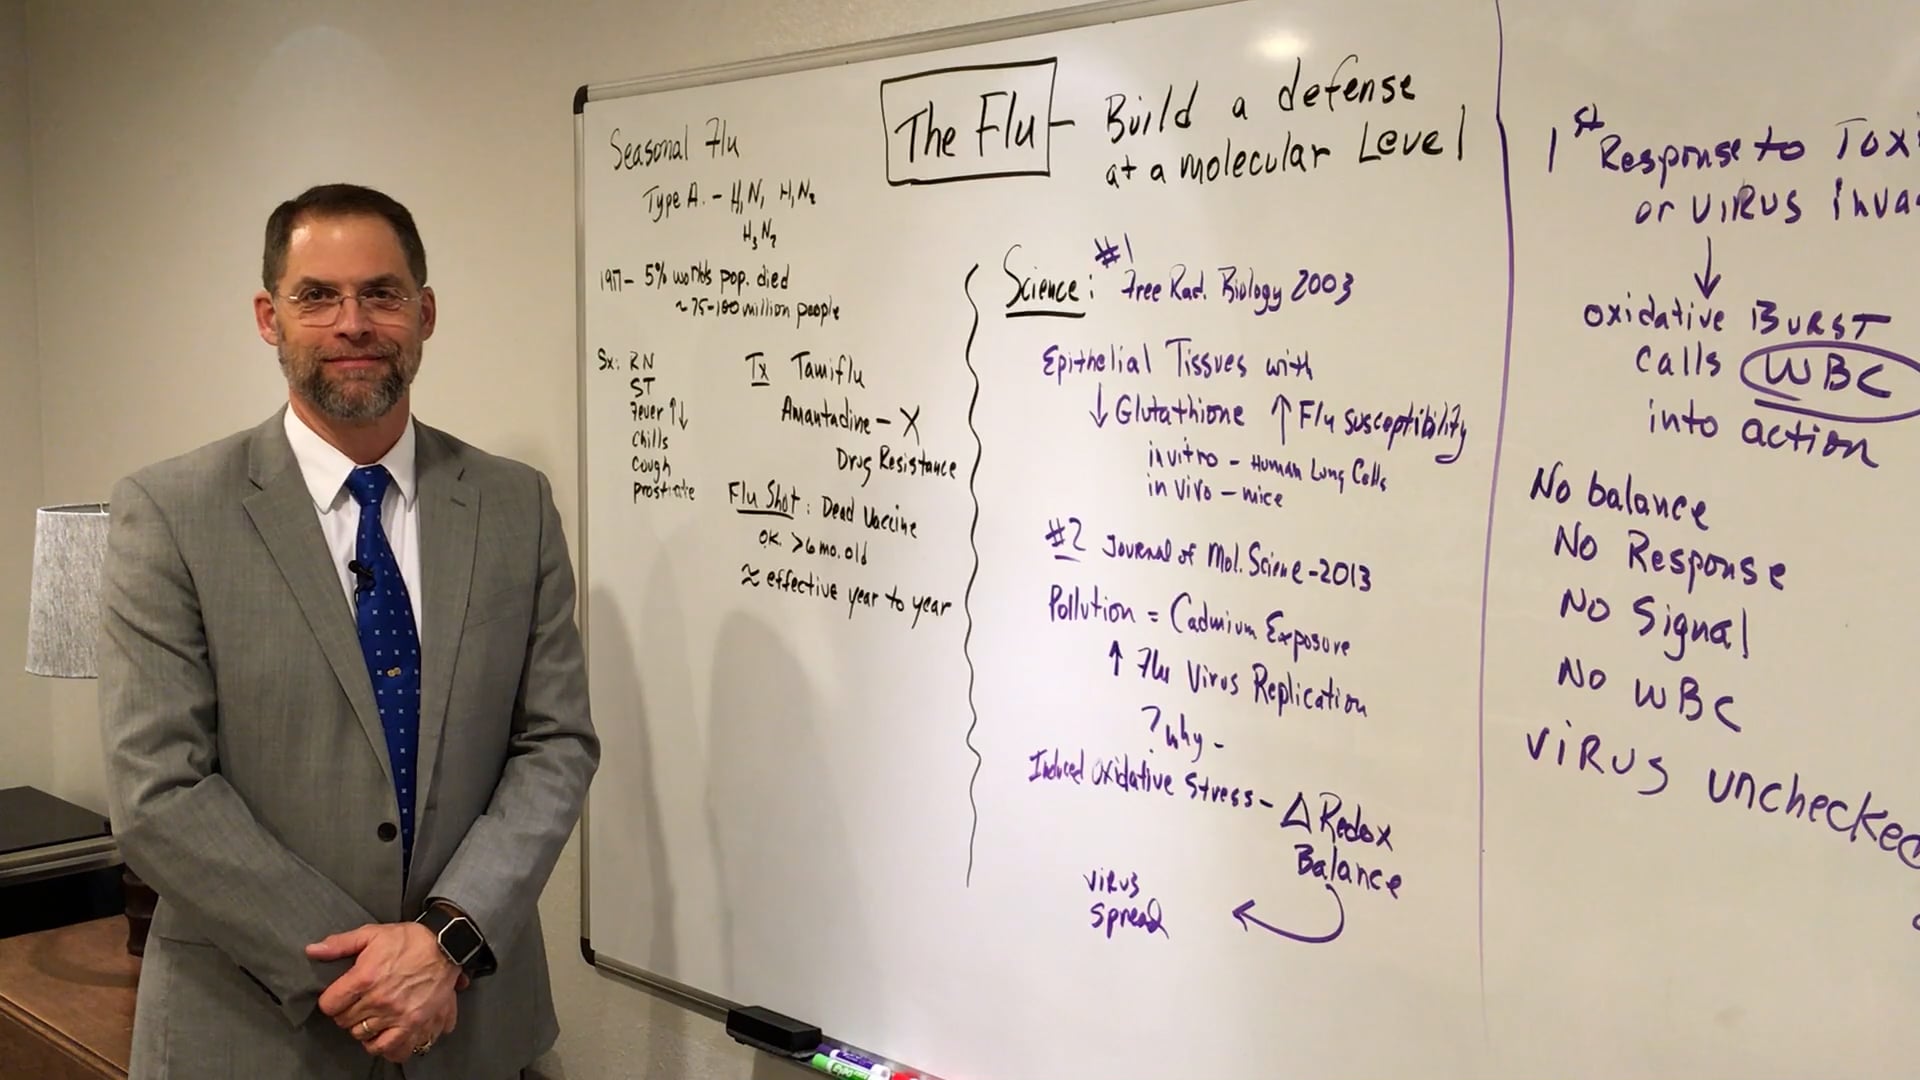 The Flu - Build a defense
at a molecular Level
Seasonal Flu
Type A. - H1N1 H1N2
H3N2
1917 - 5% worlds pop. died
~75-100 million people
Sx: RN
ST
Fever ↑↓
Chills
Cough
prostrate
Tx Tamiflu
Amantadine - X
Drug Resistance
Flu Shot: Dead Vaccine
OK. >6 mo. old
≈ effective year to year
Science: #1 Free Rad. Biology 2003
Epithelial Tissues with
↓ Glutathione ↑ Flu susceptibility
in vitro - Human Lung Cells
in vivo - mice
#2 Journal of Mol. Science - 2013
Pollution = Cadmium Exposure
↑ Flu Virus Replication
? why -
Induced oxidative Stress - Δ Redox
Balance
virus
spread
1st Response to Toxi
or virus inva
↓
oxidative Burst
calls WBC
into action
No balance
No Response
No Signal
No WBC
virus unchecked